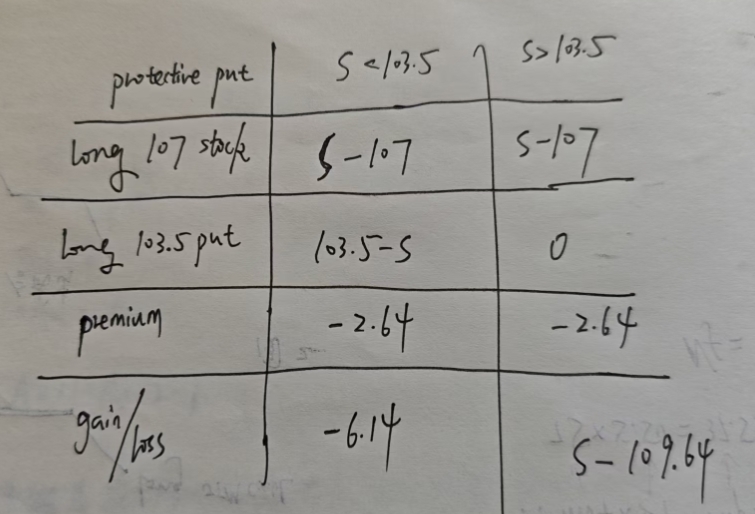 protective put S < 103.5 S > 103.5
Long 107 stock S - 107 S - 107
Long 103.5 put 103.5 - S 0
premium - 2.64 - 2.64
gain/loss - 6.14 S - 109.64